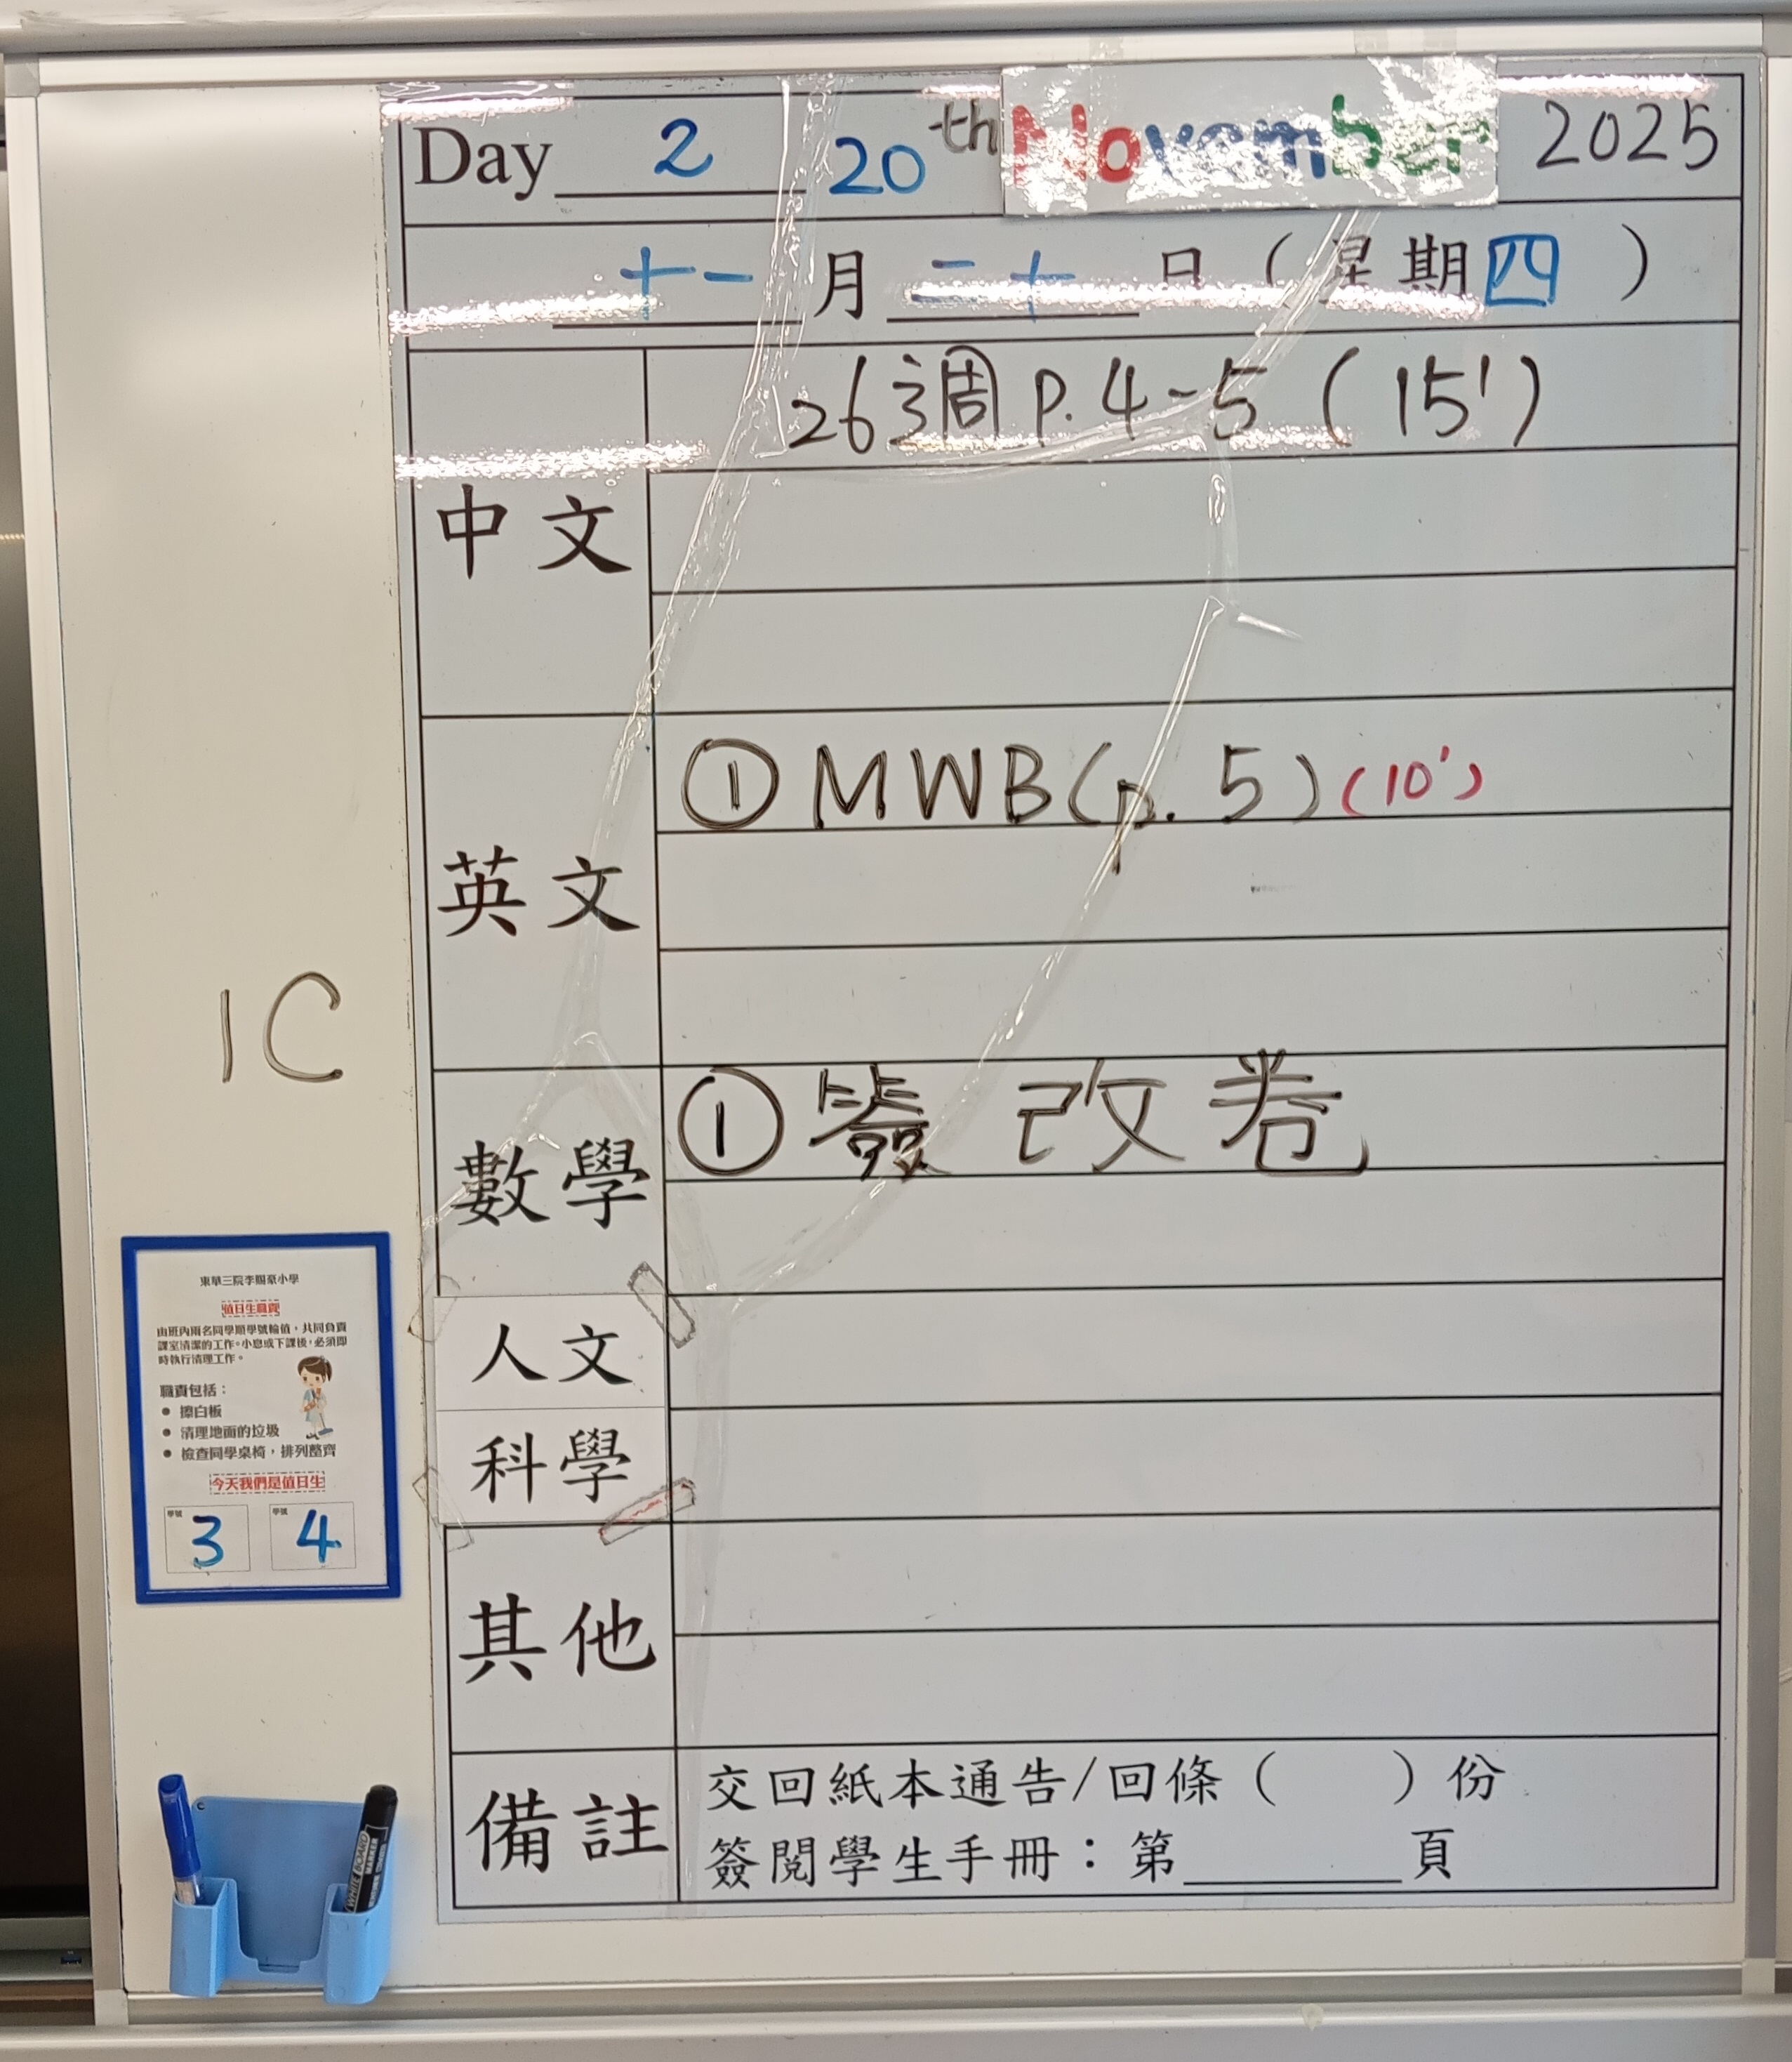 Day 2 20th November 2025
十一月二十日（星期四）
中文
26週 P.4-5 (15')
英文
① MWB(p. 5) (10')
數學
① 簽 改 卷
人文
科學
其他
備註
交回紙本通告/回條（　　）份
簽閱學生手冊：第______頁
1C
東華三院李賜豪小學
值日生職責
由班內兩名同學順學號輪值，共同負責
課室清潔的工作。小息或下課後，必須即
時執行清理工作。
職責包括：
• 擦白板
• 清理地面的垃圾
• 檢查同學桌椅，排列整齊
今天我們是值日生
學號 3 學號 4
WHITE BOARD
MARKER